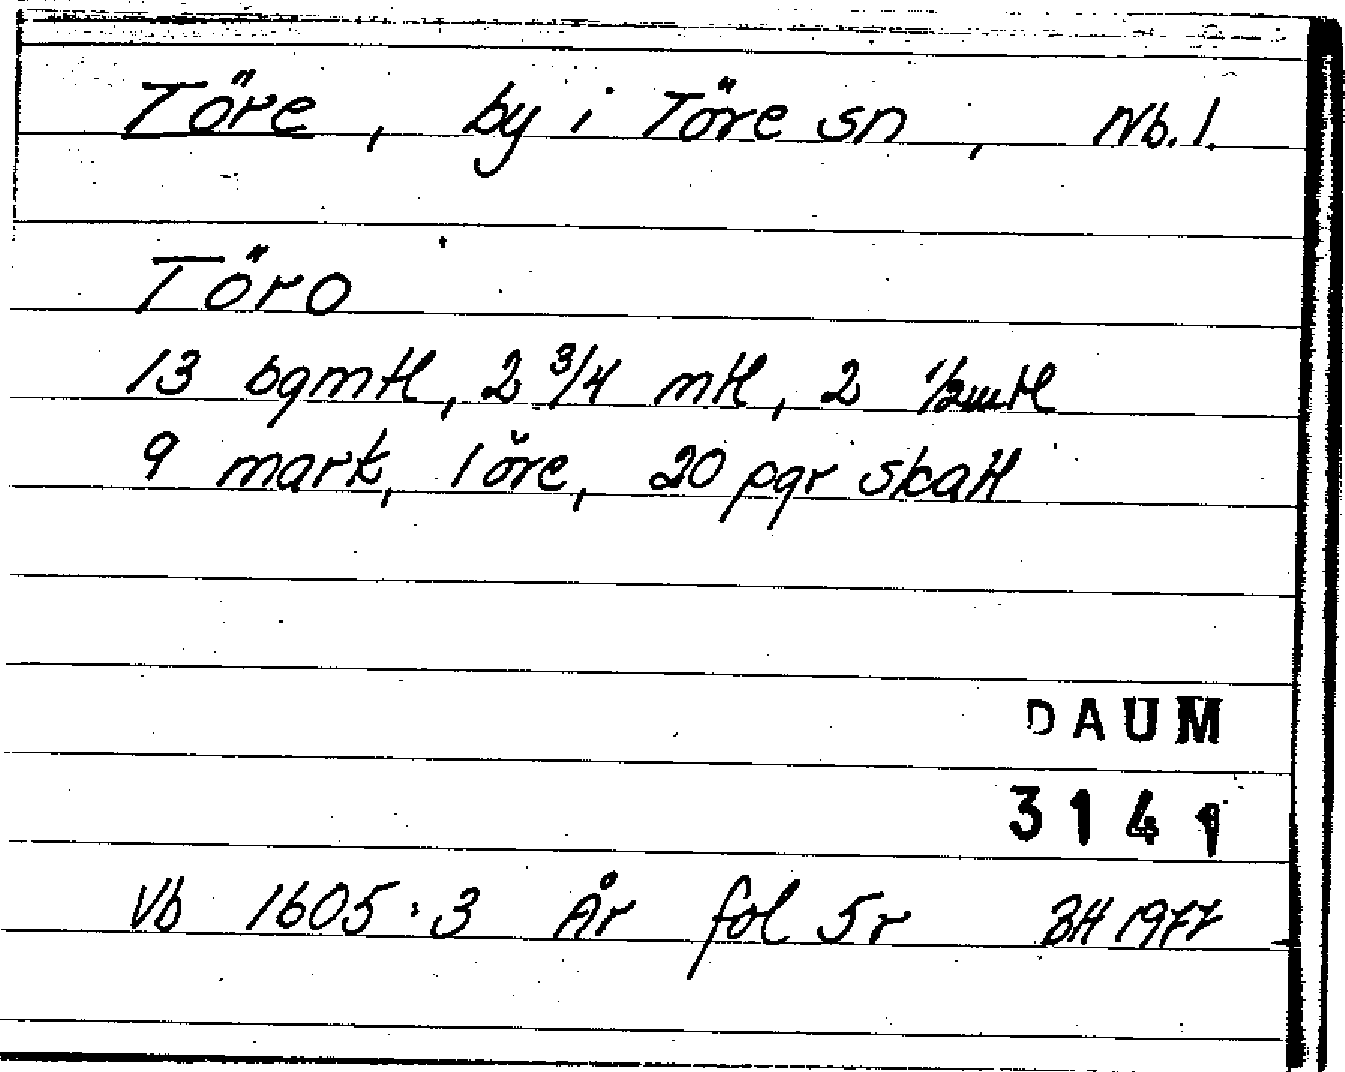 Töre, by i Töre sn, Nb.l.
Törö
13 bgmtl, 2 3/4 mtl, 2 1/2mtl
9 mark, 1 öre, 20 pgr skatt
DAUM
3141
Vb 1605:3 År fol 5r BH 1977